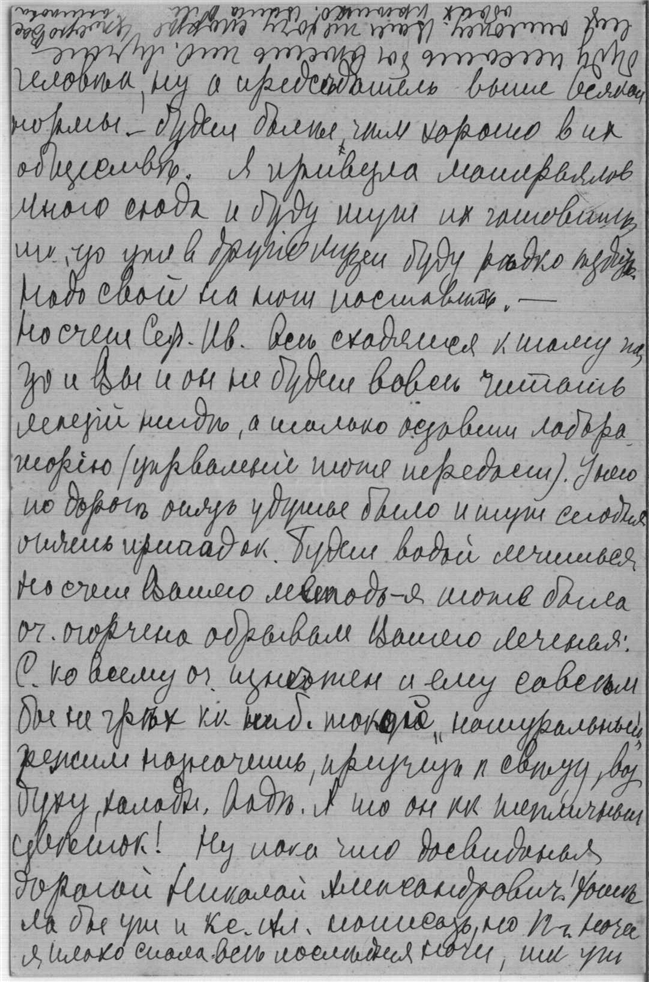 человѣка, ну а председатель выше всякой
нормы. – Будем более, чем хорошо в их
обществѣ. Я привезла матерьялов
много сюда и буду тут их готовить
т.к. уже в другие музеи буду рѣдко
Надо свой на ноги поставить. —
Насчет Сер. Ив. весь сходятся к тому
и Вы и он не будете вовсе читать
лекцій нигдѣ, а только лабора
торію (управленіе тоже передаст). У него
по дорогѣ опять удушье было и тут сегодня
опять припадок. Будет водой лечиться
насчет Вашего метода – я тоже была
оч. огорчена обрывом Вашего леченья:
С. ко всему оч. изнѣжен и ему совсѣм
бы не грѣх кк ниб. такой „натуральный"
режим назначить, приучить к свѣту, воз
духу, холодн. водѣ. А то он кк тепличный
цвѣток! Ну пока что досвиданья
дорогой Николай Александрович! Хотѣ
ла бы ещё и Кс. Ал. написать, но
я плохо спала всѣ послѣдніе ночи, так что
Буду писать
Вам не хочу скорѣе
обоих